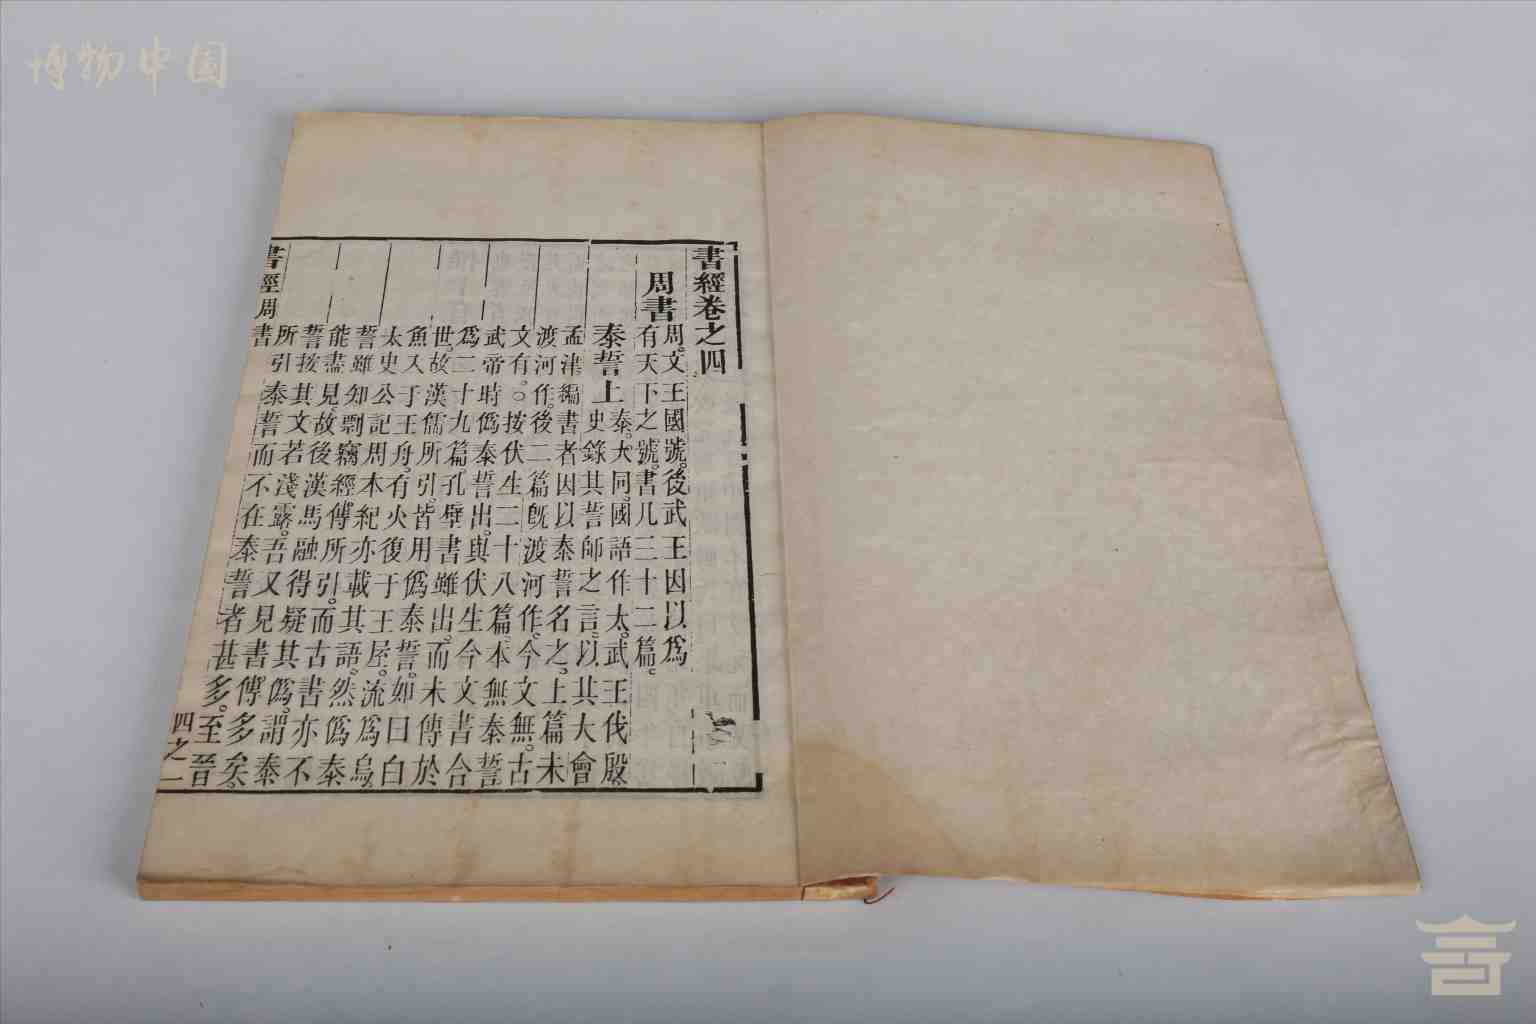 博物中国
書經卷之四
周書
周。文王國號。後武王因以爲
有天下之號。書凡三十二篇。
泰誓上
泰。大同。國語作太。武王伐殷
史錄其誓師之言。以其大會
孟津。編書者因以泰誓名之。上篇未
渡河作。後二篇旣渡河作。今文無。古
文有。○按伏生二十八篇。本無泰誓
武帝時僞泰誓出。與伏生今文書合
爲二十九篇。孔壁書雖出。而未傳於
世。故漢儒所引。皆用僞泰誓。如曰白
魚入于王舟。有火復于王屋。流爲烏。
太史公記周本紀亦載其語。然僞泰
誓雖知剽竊經傳所引。而古書亦不
能盡見。故後漢馬融得疑其僞。謂泰
誓按其文若淺露。吾又見書傳多矣。
所引泰誓而不在泰誓者甚多。至晉
書經周書 四之一